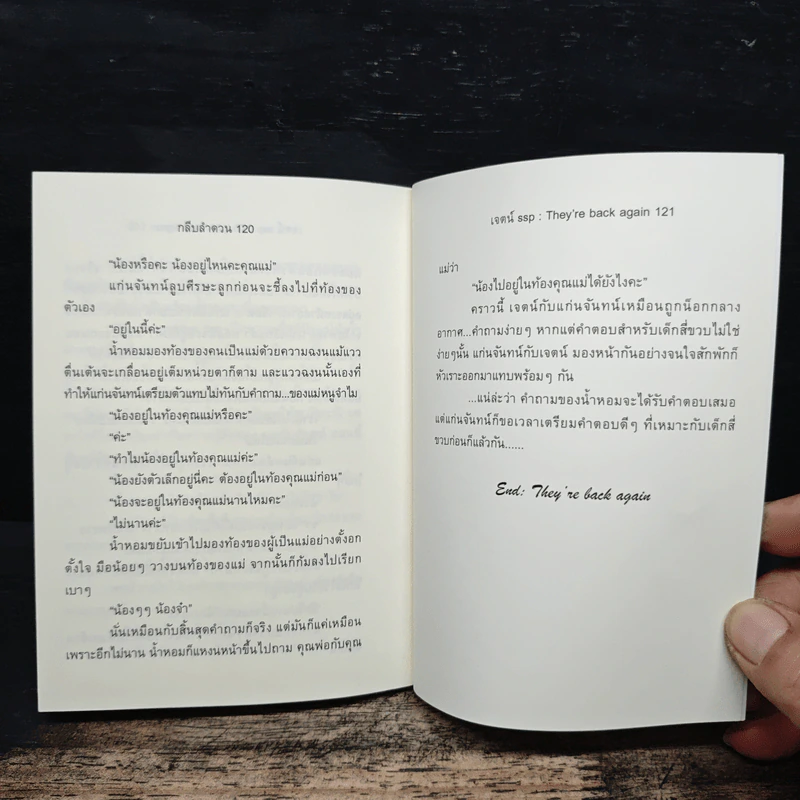 กลีบลำดวน 120
"น้องหรือคะ น้องอยู่ไหนคะคุณแม่"
แก่นจันทน์ลูบศีรษะลูกก่อนจะชี้ลงไปที่ท้องของ
ตัวเอง
"อยู่ในนี้ค่ะ"
น้ำหอมมองท้องของคนเป็นแม่ด้วยความฉงนแม้แวว
ตื่นเต้นจะเกลื่อนอยู่เต็มหน่วยตาก็ตาม และแววฉงนนั้นเองที่
ทำให้แก่นจันทน์เตรียมตัวแทบไม่ทันกับคำถาม...ของแม่หนูจำไม
"น้องอยู่ในท้องคุณแม่หรือคะ"
"ค่ะ"
"ทำไมน้องอยู่ในท้องคุณแม่ค่ะ"
"น้องยังตัวเล็กอยู่นี่คะ ต้องอยู่ในท้องคุณแม่ก่อน"
"น้องจะอยู่ในท้องคุณแม่นานไหมคะ"
"ไม่นานค่ะ"
น้ำหอมขยับเข้าไปมองท้องของผู้เป็นแม่อย่างตั้งอก
ตั้งใจ มือน้อยๆ วางบนท้องของแม่ จากนั้นก็ก้มลงไปเรียก
เบาๆ
"น้องๆๆ น้องจ๋า"
นั่นเหมือนกับสิ้นสุดคำถามก็จริง แต่มันก็แค่เหมือน
เพราะอีกไม่นาน น้ำหอมก็แหงนหน้าขึ้นไปถาม คุณพ่อกับคุณ
เจตน์ ssp : They're back again 121
แม่ว่า
"น้องไปอยู่ในท้องคุณแม่ได้ยังไงคะ"
คราวนี้ เจตน์กับแก่นจันทน์เหมือนถูกน็อกกลาง
อากาศ...คำถามง่ายๆ หากแต่คำตอบสำหรับเด็กสี่ขวบไม่ใช่
ง่ายๆนั้น แก่นจันทน์กับเจตน์ มองหน้ากันอย่างจนใจสักพักก็
หัวเราะออกมาแทบพร้อมๆ กัน
...แน่ล่ะว่า คำถามของน้ำหอมจะได้รับคำตอบเสมอ
แต่แก่นจันทน์ก็ขอเวลาเตรียมคำตอบดีๆ ที่เหมาะกับเด็กสี่
ขวบก่อนก็แล้วกัน......
End: They're back again